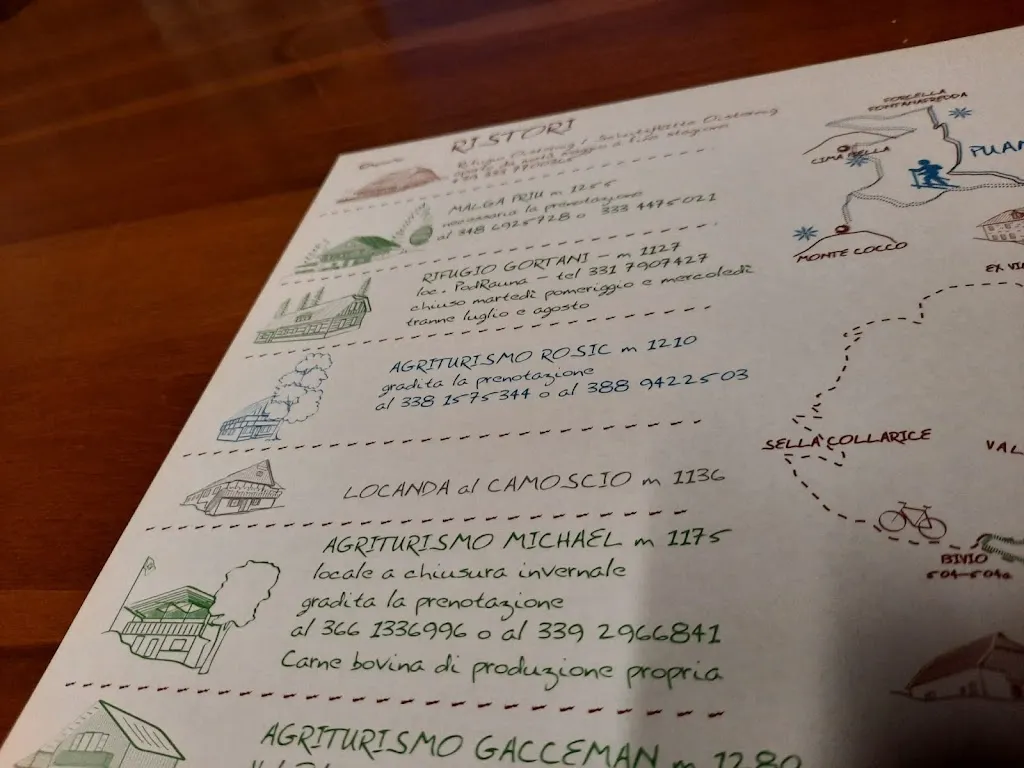 RISTORI
MALGA PRIU m 1255
necessaria la prenotazione
al 348 6925728 o 333 4475021
RIFUGIO GORTANI - m 1127
loc. PodRauna - tel 331 7907427
chiuso martedì pomeriggio e mercoledì
tranne luglio e agosto
AGRITURISMO ROSIC m 1210
gradita la prenotazione
al 338 1575344 o al 388 9422503
LOCANDA al CAMOSCIO m 1136
AGRITURISMO MICHAEL m 1175
locale a chiusura invernale
gradita la prenotazione
al 366 1336996 o al 339 2966841
Carne bovina di produzione propria
AGRITURISMO GACCEMAN m 1280
FORCELLA
FONTANAFREDDA
CIMA BELLA
MONTE COCCO
SELLA COLLARICE
BIVIO
504-504a